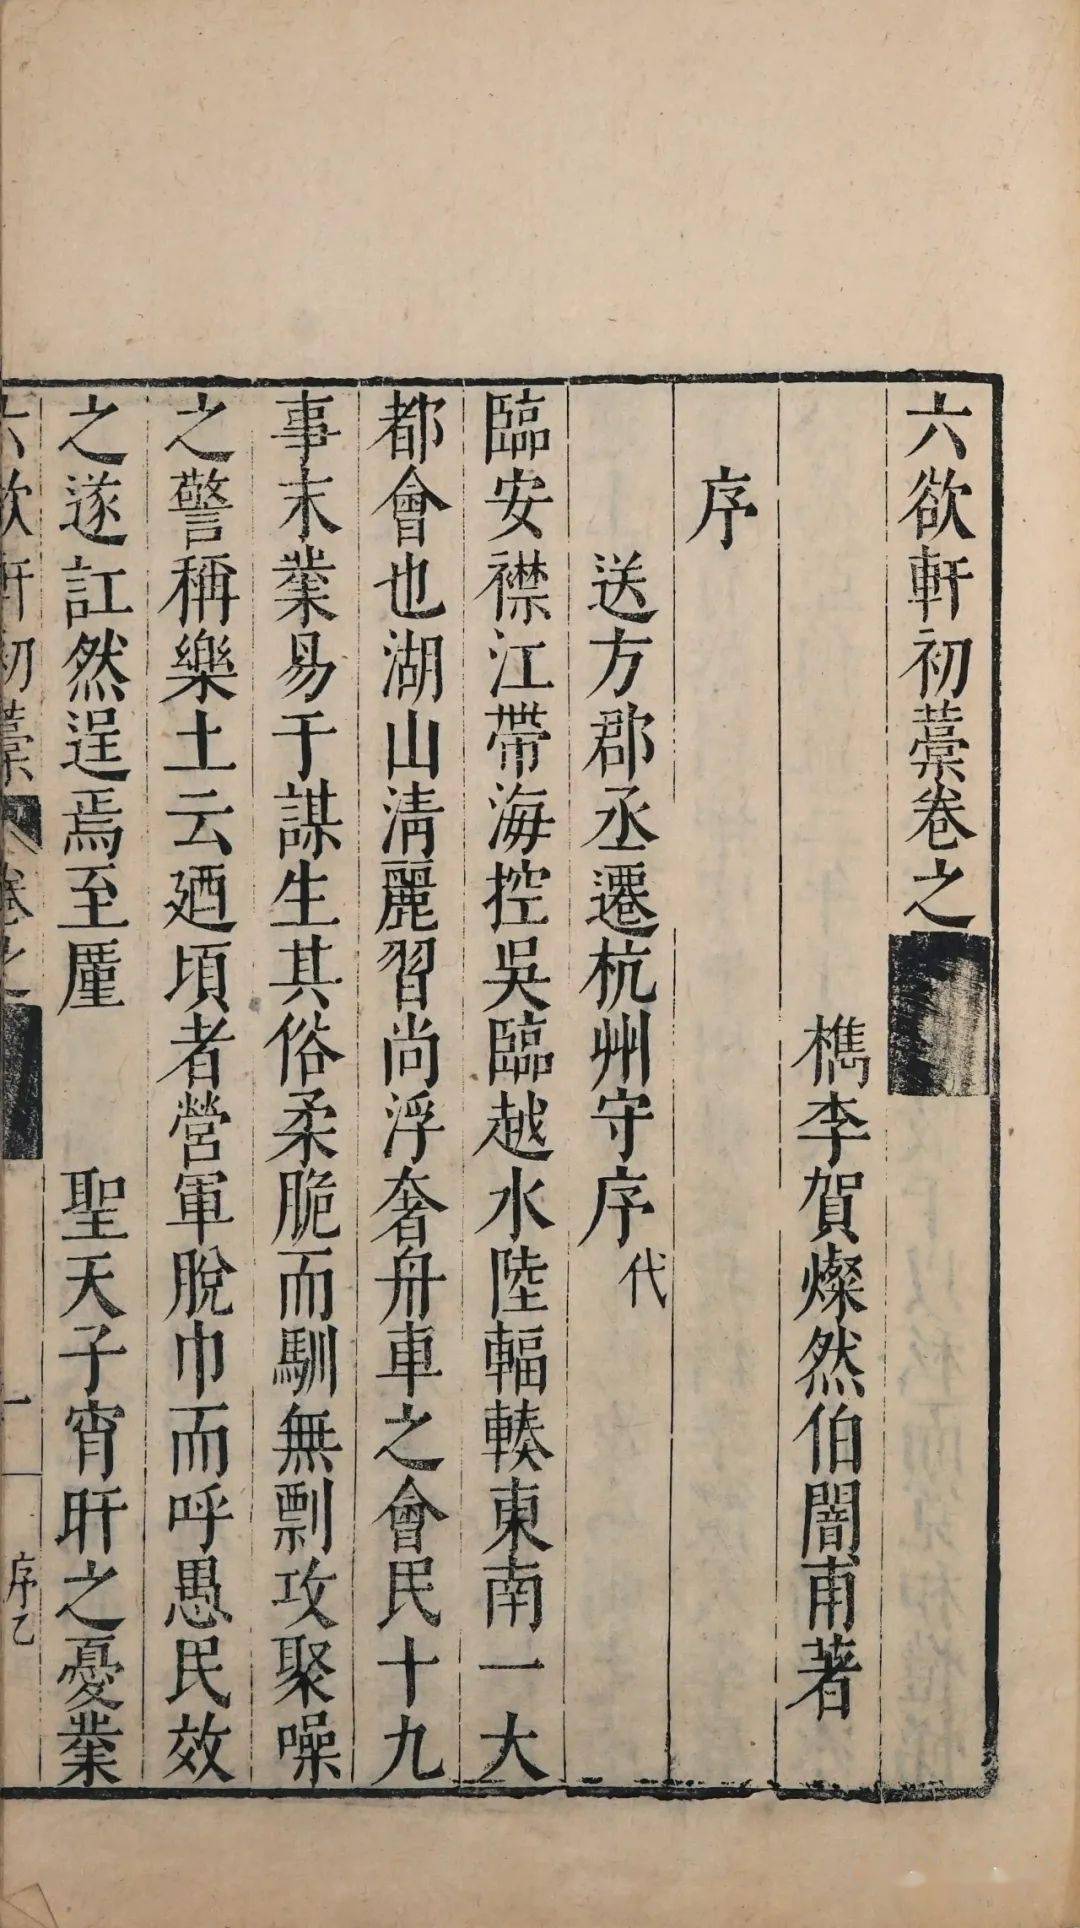 六欲軒初藁卷之
檇李賀燦然伯闇甫著
序
送方郡丞遷杭州守序代
臨安襟江帶海控吳臨越水陸輻輳東南一大
都會也湖山清麗習尚浮奢舟車之會民十九
事末業易于謀生其俗柔脆而馴無剽攻聚噪
之警稱樂土云廼頃者營軍脫巾而呼愚民效
之遂訌然逞焉至厪 聖天子宵旰之憂業
六欲軒初藁 卷之 一 序乙